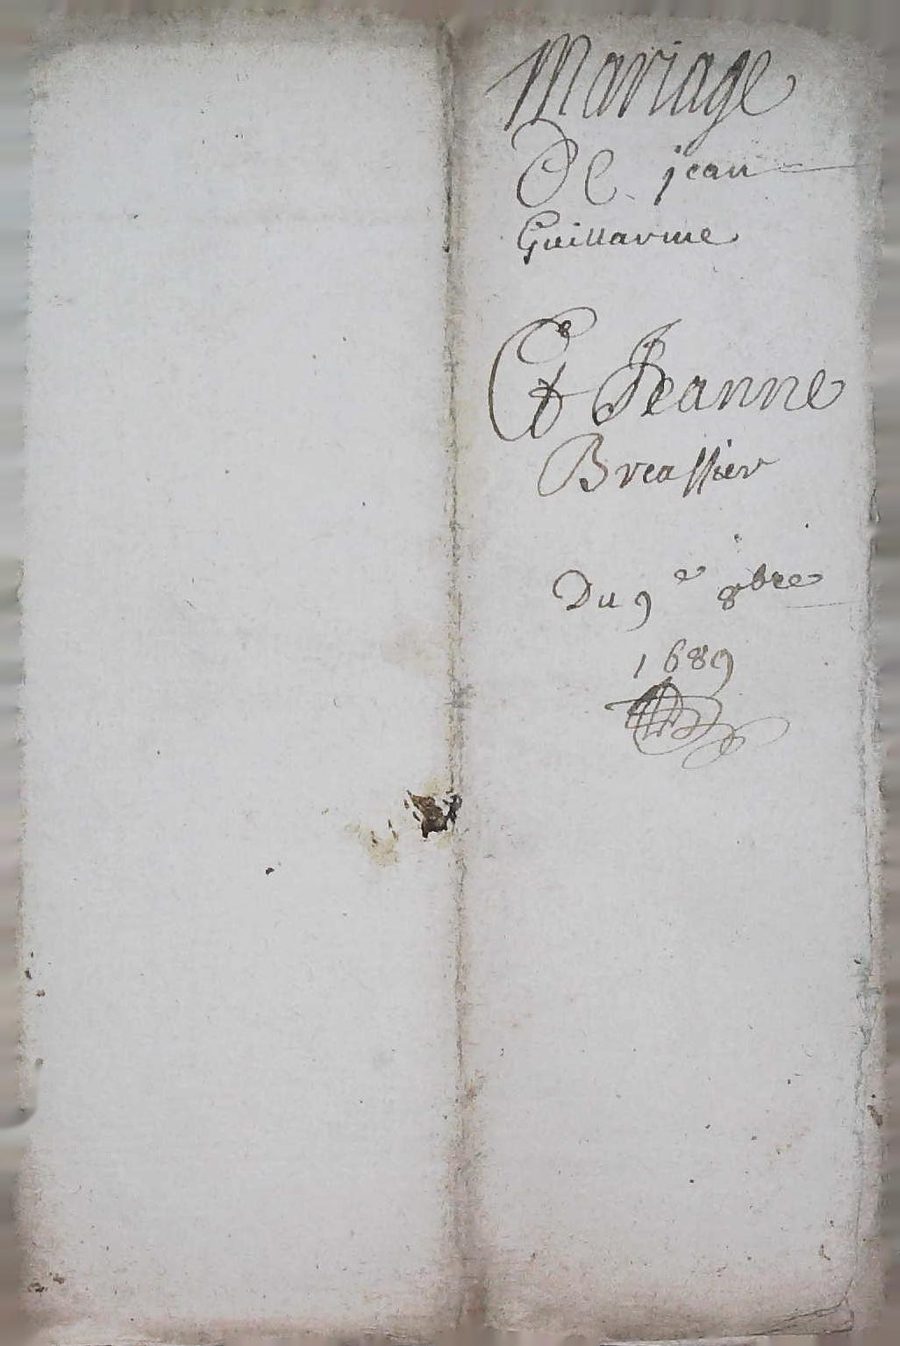 Mariage
De jean
Guillarme
Et Jeanne
Breassier
Du 9e 8bre
1689